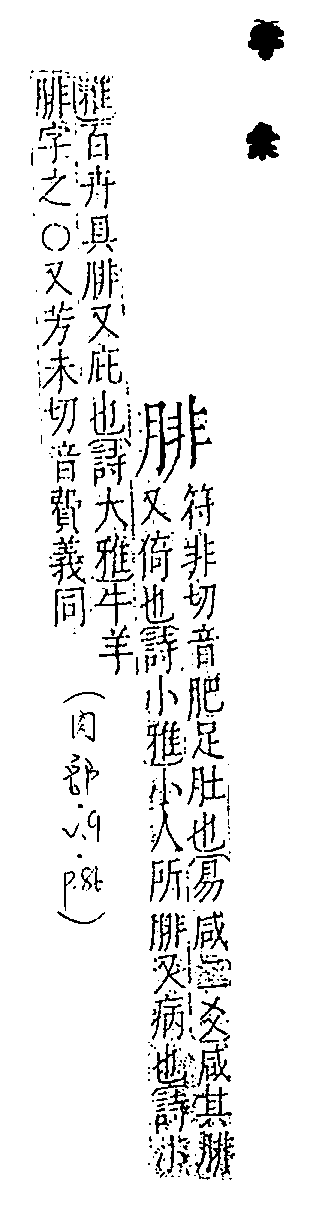 字彙
腓
符非切音肥足肚也易咸二爻咸其腓
又倚也詩小雅小人所腓又病也詩小
雅百卉具腓又庇也詩大雅牛羊
腓字之○又芳未切音費義同
(肉部.v.9.p.86)